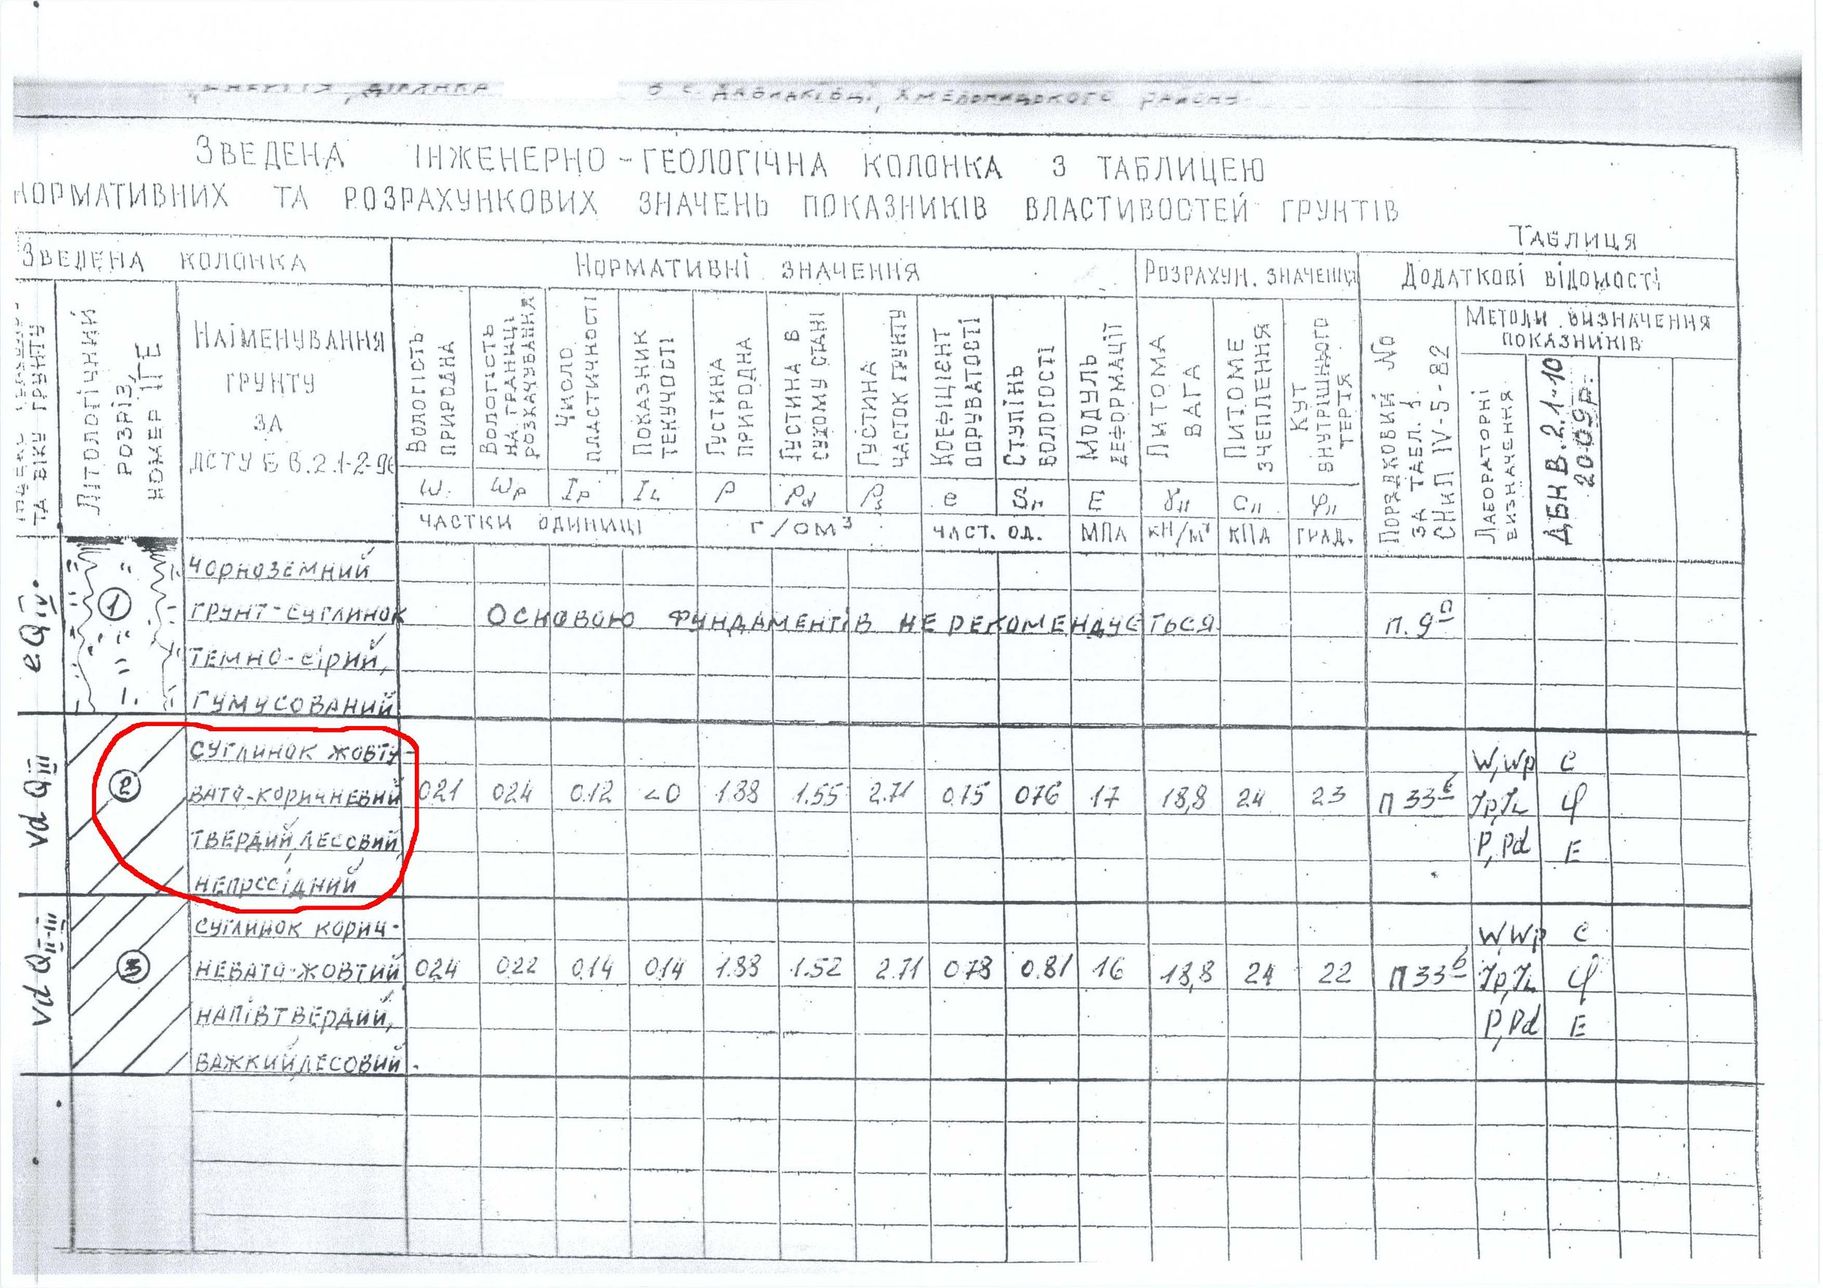 ДІЛЯНКА В С. ДАВИДКІВЦІ, ХМЕЛЬНИЦЬКОГО РАЙОНУ
ЗВЕДЕНА ІНЖЕНЕРНО-ГЕОЛОГІЧНА КОЛОНКА З ТАБЛИЦЕЮ
НОРМАТИВНИХ ТА РОЗРАХУНКОВИХ ЗНАЧЕНЬ ПОКАЗНИКІВ ВЛАСТИВОСТЕЙ ГРУНТІВ
ТАБЛИЦЯ
ЗВЕДЕНА КОЛОНКА
НОРМАТИВНІ ЗНАЧЕННЯ
РОЗРАХУН. ЗНАЧЕННЯ
ДОДАТКОВІ ВІДОМОСТІ
ТА ВІКУ ГРУНТУ
ЛІТОЛОГІЧНИЙ
РОЗРІЗ,
НОМЕР ІГЕ
НАЙМЕНУВАННЯ
ГРУНТУ
ЗА
ДСТУ Б В.2.1-2-96
ВОЛОГІСТЬ
ПРИРОДНА
ВОЛОГІСТЬ
НА ГРАНИЦІ
РОЗКАЧУВАННЯ
ЧИСЛО
ПЛАСТИЧНОСТІ
ПОКАЗНИК
ТЕКУЧОСТІ
ГУСТИНА
ПРИРОДНА
ГУСТИНА В
СУХОМУ СТАНІ
ГУСТИНА
ЧАСТОК ГРУНТУ
КОЕФІЦІЄНТ
ПОРУВАТОСТІ
СТУПІНЬ
ВОЛОГОСТІ
МОДУЛЬ
ДЕФОРМАЦІЇ
ПИТОМА
ВАГА
ПИТОМЕ
ЗЧЕПЛЕННЯ
КУТ
ВНУТРІШНЬОГО
ТЕРТЯ
ПОРЯДКОВИЙ No
ЗА ТАБЛ. 1.
СНиП IV-5-82
МЕТОДИ ВИЗНАЧЕННЯ
ПОКАЗНИКІВ
ЛАБОРАТОРНІ
ВИЗНАЧЕННЯ
ДБН В.2.1-10
2009р.
W Wp Ip IL ρ ρd e E γII CII φII
ЧАСТКИ ОДИНИЦІ Г/СМ³ ЧАСТ. ОД. МПА КН/М³ КПА ГРАД.
eQIV
1
ЧОРНОЗЕМНИЙ
ГРУНТ-СУГЛИНОК ОСНОВОЮ ФУНДАМЕНТІВ НЕ РЕКОМЕНДУЄТЬСЯ п. 9
ТЕМНО-СІРИЙ,
ГУМУСОВАНИЙ
vd QIII
2
СУГЛИНОК ЖОВТУ- W, Wp C
ВАТО-КОРИЧНЕВИЙ 0.21 0.24 0.12 <0 1.88 1.55 2.71 0.75 0.76 17 18,8 24 23 П 33б Jp, JL φ
ТВЕРДИЙ, ЛЕСОВИЙ, P, Pd E
НЕПРОСІДНИЙ
vd QII-III
3
СУГЛИНОК КОРИЧ- W, Wp C
НЕВАТО-ЖОВТИЙ 0.24 0.22 0.14 0.14 1.88 1.52 2.71 0.78 0.81 16 18,8 24 22 П 33б Jp, JL φ
НАПІВТВЕРДИЙ, P, Pd E
ВАЖКИЙ, ЛЕСОВИЙ.